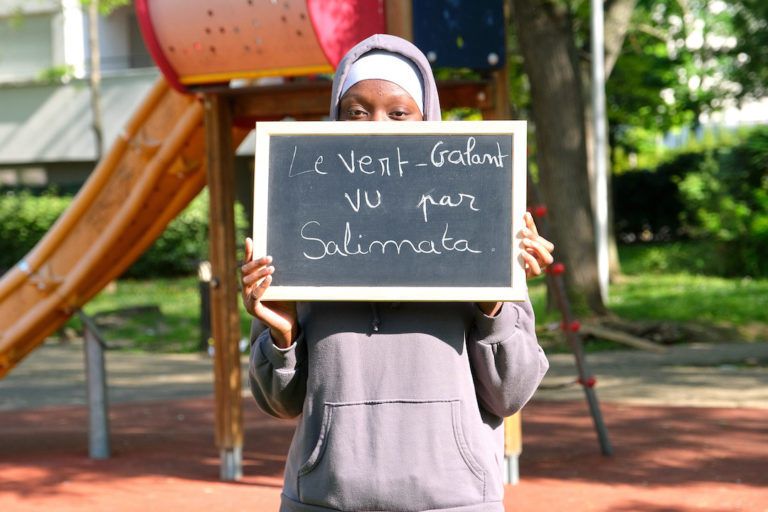 Le vert-Galant
vu par
Salimata.